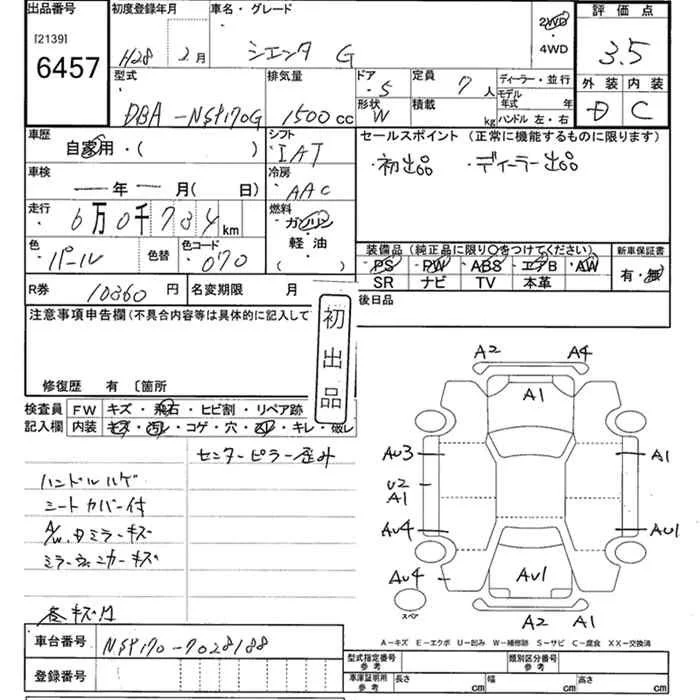 出品番号
[2139]
6457
初度登録年月
H28 2月
車名・グレード
シエンタ G
2WD
・4WD
評価点
3.5
外装 内装
D C
型式
DBA-NSP170G
排気量
1500cc
ドア
・5
形状
W
定員
7人
積載
kg
ディーラー・並行
モデル
年式 年
ハンドル 左・右
車歴
自家用・( )
シフト
IAT
セールスポイント (正常に機能するものに限ります)
・初出品 ・ディーラー出品
車検
一年一月(日)
冷房
AAC
走行
6万0千734km
燃料
ガソリン
軽油
( )
色
パール
色替
色コード
・070
装備品(純正品に限り○をつけてください)
・PS ・PW ・ABS ・エアB ・AW
SR ナビ TV 本革
新車保証書
有・無
R券 10360円
名変期限 月
後日品
注意事項申告欄(不具合内容等は具体的に記入して
初出品
修復歴 有 〔箇所
検査員
記入欄
FW キズ・飛石・ヒビ割・リペア跡
内装 キズ・汚レ・コゲ・穴・スレ・キレ・破レ
センターピラー歪み
ハンドルハゲ
シートカバー付
A/W,Dミラーキズ
各キズ凹
A2 A4
A1
AU3 A1
U2
A1
AU4 AU1
AU4 AU1
スペア
A2 A1
A-キズ E-エクボ U-凹み W-補修跡 S-サビ C-腐食 XX-交換済
車台番号 NSP170-7028188
登録番号
型式指定番号
参考
類別区分番号
参考
車庫証明用
参考
長さ cm 幅 cm 高さ cm